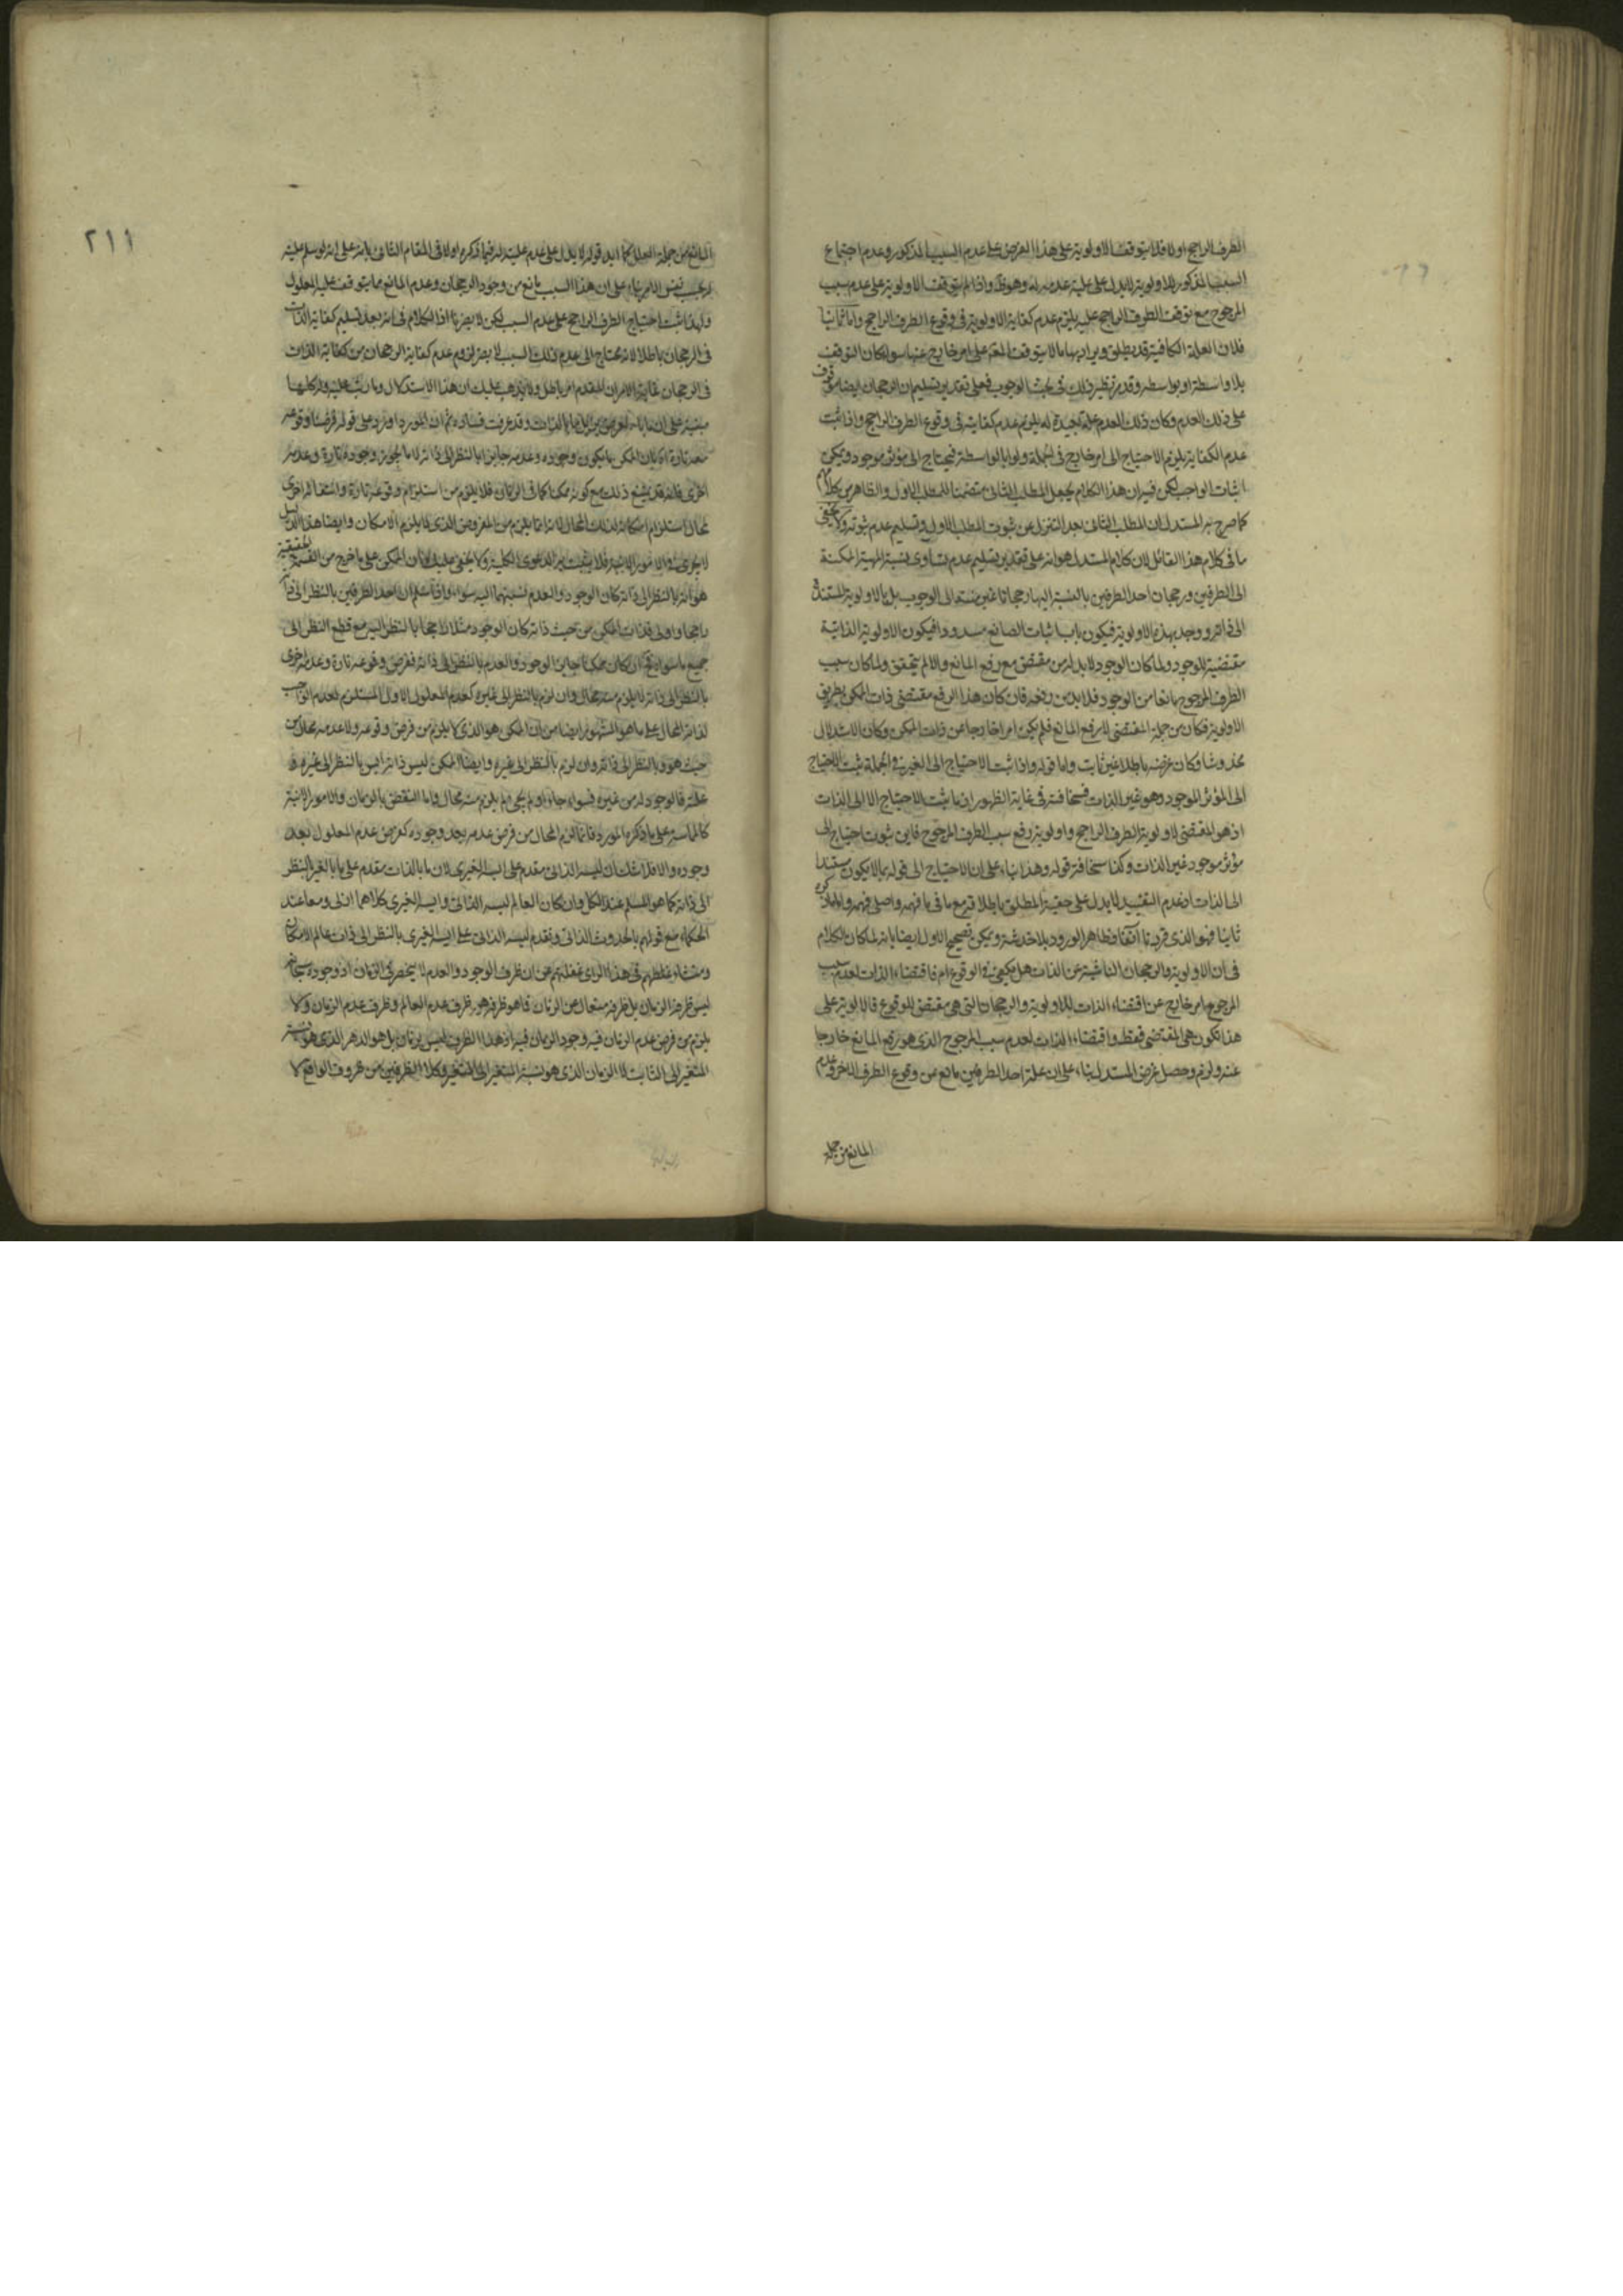 الطرف الراجح اولا فلا يتوقف الاولوية على هذا الفرض على عدم السبب المذكور وعدم اجتماع
السبب المذكور للاولوية لا يدل على علية عدمه له وهو ظ واذا لم يتوقف الاولوية على عدم سبب
المرجوح مع توقف الطرف الراجح عليه يلزم عدم كفاية الاولوية في وقوع الطرف الراجح واما ثانيا
فلان العلة الكافية قد يطلق ويراد بها ما لا يتوقف المعلم على امر خارج عنها سواء كان التوقف
بلا واسطة او بواسطة وقد مر نظير ذلك في بحث الوجوب فعلى تقدير تسليم ان الرجحان ايضا موقوف
على ذلك العدم وكان ذلك العدم علة بعيدة له يلزم عدم كفايته في وقوع الطرف الراجح واذا ثبت
عدم الكفاية يلزم الاحتياج الى امر خارج في الجملة ولو بالواسطة فيحتاج الى مؤثر موجود ويمكن
اثبات الواجب لكن فيه ان هذا الكلام يجعل المطلب الثاني متضمنا للمطلب الاول والظاهر من كلام
كما صرح به المستدل ان المطلب الثاني بعد التنزل عن ثبوت المطلب الاول وتسليم عدم ثبوته ولا يخفى
ما في كلام هذا القائل لان كلام المستدل هو انه على تقدير تسليم عدم تساوى نسبة المهية الممكنة
الى الطرفين ورجحان احد الطرفين بالنسبة اليها رجحانا غير منته الى الوجوب بل بالاولوية المستندة
الى ذاته ووجد بهذه الاولوية فيكون باب اثبات الصانع مسدودا فيكون الاولوية الذاتية
مقتضية للوجود ولما كان الوجود لا بد له من مقتض مع رفع المانع والا لم يتحقق ولما كان سبب
الطرف المرجوح مانعا من الوجود فلا بد من رفعه فان كان هذا الرفع مقتضى ذات الممكن بطريق
الاولوية فكان من جملة المقتضى لا رفع المانع فلم يكن امرا خارجا عن ذات الممكن وكان الاستدلال
مخدوشا وكان غرضه باطلا غير ثابت واما قوله واذا ثبت الاحتياج الى الغير في الجملة يثبت الاحتياج
الى المؤثر الموجود وهو غير الذات فسخافته في غاية الظهور اذ ما ثبت الاحتياج الا الى الذات
اذ هو المقتضى لاولوية الطرف الراجح واولوية رفع سبب الطرف المرجوح فاين ثبوت احتياج الى
مؤثر موجود غير الذات وكذا سخافة قوله وهذا بناء على ان الاحتياج الى قوله بما لا يكون مستندا
الى الذات اذ عدم التقييد لا يدل على حقية المطلق باطلاقه مع ما في ما فهمه واصل فهمه واما ما ذكره
ثانيا فهو الذي قررنا آنفا وظاهر الورود بلا خدشة ويمكن تصحيح الاول ايضا بانه لما كان الكلام
في ان الاولوية والرجحان الناشية عن الذات هل يكفي في الوقوع ام فاقتضاء الذات لعدم سبب
المرجوح امر خارج عن اقتضاء الذات للاولوية والرجحان التي هي مقتض للوقوع فالاولوية على
هذا تكون هي المقتضى فقط واقتضاء الذات لعدم سبب المرجوح الذي هو رفع المانع خارجا
عنه ولزم وحصل غرض المستدل بناء على ان علة احد الطرفين مانع من وقوع الطرف الاخر وعدم
المانع من جملة
٢١١
المانع من جملة العلل كما ايد قوله لا يدل على عدم عليته له فيما ذكره اولا في المقام الثاني بانه على انه لو سلم عليته
له بحسب نفس الامر بناء على ان هذا السبب مانع من وجود الرجحان وعدم المانع مما يتوقف عليه المعلول
ولهذا ثبت احتياج الطرف الراجح على عدم السبب لكن لا يضرنا اذ الكلام في انه بعد تسليم كفاية الذات
في الرجحان باطلا لانه يحتاج الى عدم ذلك السبب لا يضر لزوم عدم كفاية الرجحان من كفاية الذات
في الرجحان غاية الامر ان المقدم امر باطل ولا يذهب عليك ان هذا الاستدلال وما يبتنى عليه وله كلها
مبنية على ان ما بالعرض يزيل ما بالذات وقد عرفت فساده ثم ان المورد اورد على قوله فرضنا وقوعه
معه تارة بان الممكن ما يكون وجوده وعدمه جايزا بالنظر الى ذاته لا ما يجوز وجوده تارة وعدمه
اخرى فانه قد يمتنع ذلك مع كونه ممكنا كما في الزمان فلا يلزم من استلزام وقوعه تارة وانتفائه اخرى
محالا استلزام امكانه لذلك المحال لانه انما يلزم من المفروض الذي لا يلزم الامكان وايضا هذا الدليل
لا يجرى في الامور الآنية فلا يثبت به الدعوى الكلية ولا يخفى عليك ان الممكن على ما خرج من القسمة الحقيقية
هو انه بالنظر الى ذاته كان الوجود والعدم نسبتهما اليه سواء واذا سلم ان احد الطرفين بالنظر الى ذاته
راجحا واولى فذات الممكن من حيث ذاته كان الوجود مثلا راجحا بالنظر اليه مع قطع النظر الى
جميع ما سواه فح ان كان ممكنا جايز الوجود والعدم بالنظر الى ذاته ففرض وقوعه تارة وعدمه اخرى
بالنظر الى ذاته لا يلزم منه محال وان لزم بالنظر الى غيره كعدم المعلول الاول المستلزم لعدم الواجب
لذاته المحال على ما هو المشهور ايضا من ان الممكن هو الذي لا يلزم من فرض وقوعه ولا عدمه محال من
حيث هو وبالنظر الى ذاته وان لزم بالنظر الى غيره وايضا الممكن ليس ذاته ايس بالنظر الى غيره و
علته فالوجود له من غيره فسواء جاء او لم يجئ لم يلزم منه محال واما النقض بالزمان والامور الآنية
كالمماسة على ما ذكره المورد فانما لزم المحال من فرض عدمه بعد وجوده كفرض عدم المعلول بعد
وجوده والا فلا شك ان ليسه الذاتي مقدم على ايسه الغيري لان ما بالذات مقدم على ما بالغير بالنظر
الى ذاته كما هو المسلم عند الكل وان كان العالم ليسه الذاتي وايسه الغيري كلاهما ازلى ومعا عند
الحكماء مع قولهم بالحدوث الذاتي وتقدم ليسه الذاتي على ايسه الغيري بالنظر الى ذات عالم الامكان
ومنشاء غلطهم في هذا الراى غفلتهم عن ان ظرف الوجود والعدم لا ينحصر في الزمان اذ وجوده سبحانه
ليس ظرفه الزمان بل ظرفه متعال عن الزمان فما هو ظرفه هو ظرف عدم العالم وظرف عدم الزمان ولا
يلزم من فرض عدم الزمان فيه وجود الزمان فيه اذ هذا الظرف ليس بزمان بل هو الدهر الذي هو نسبة
المتغير الى الثابت لا الزمان الذي هو نسبة المتغير الى المتغير وكلا الظرفين من ظروف الواقع لا